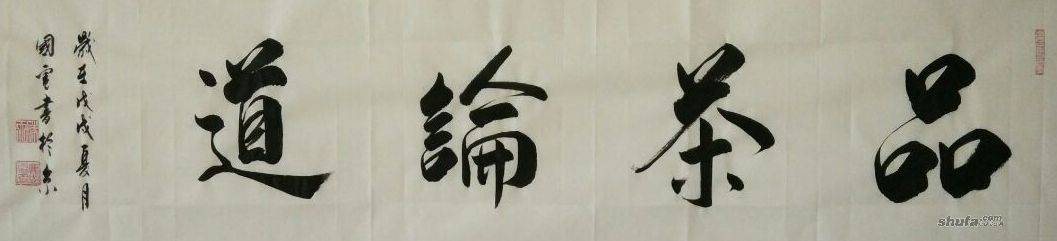 品茶論道
歲在戊戌夏月
國雲書於京
shufa.com